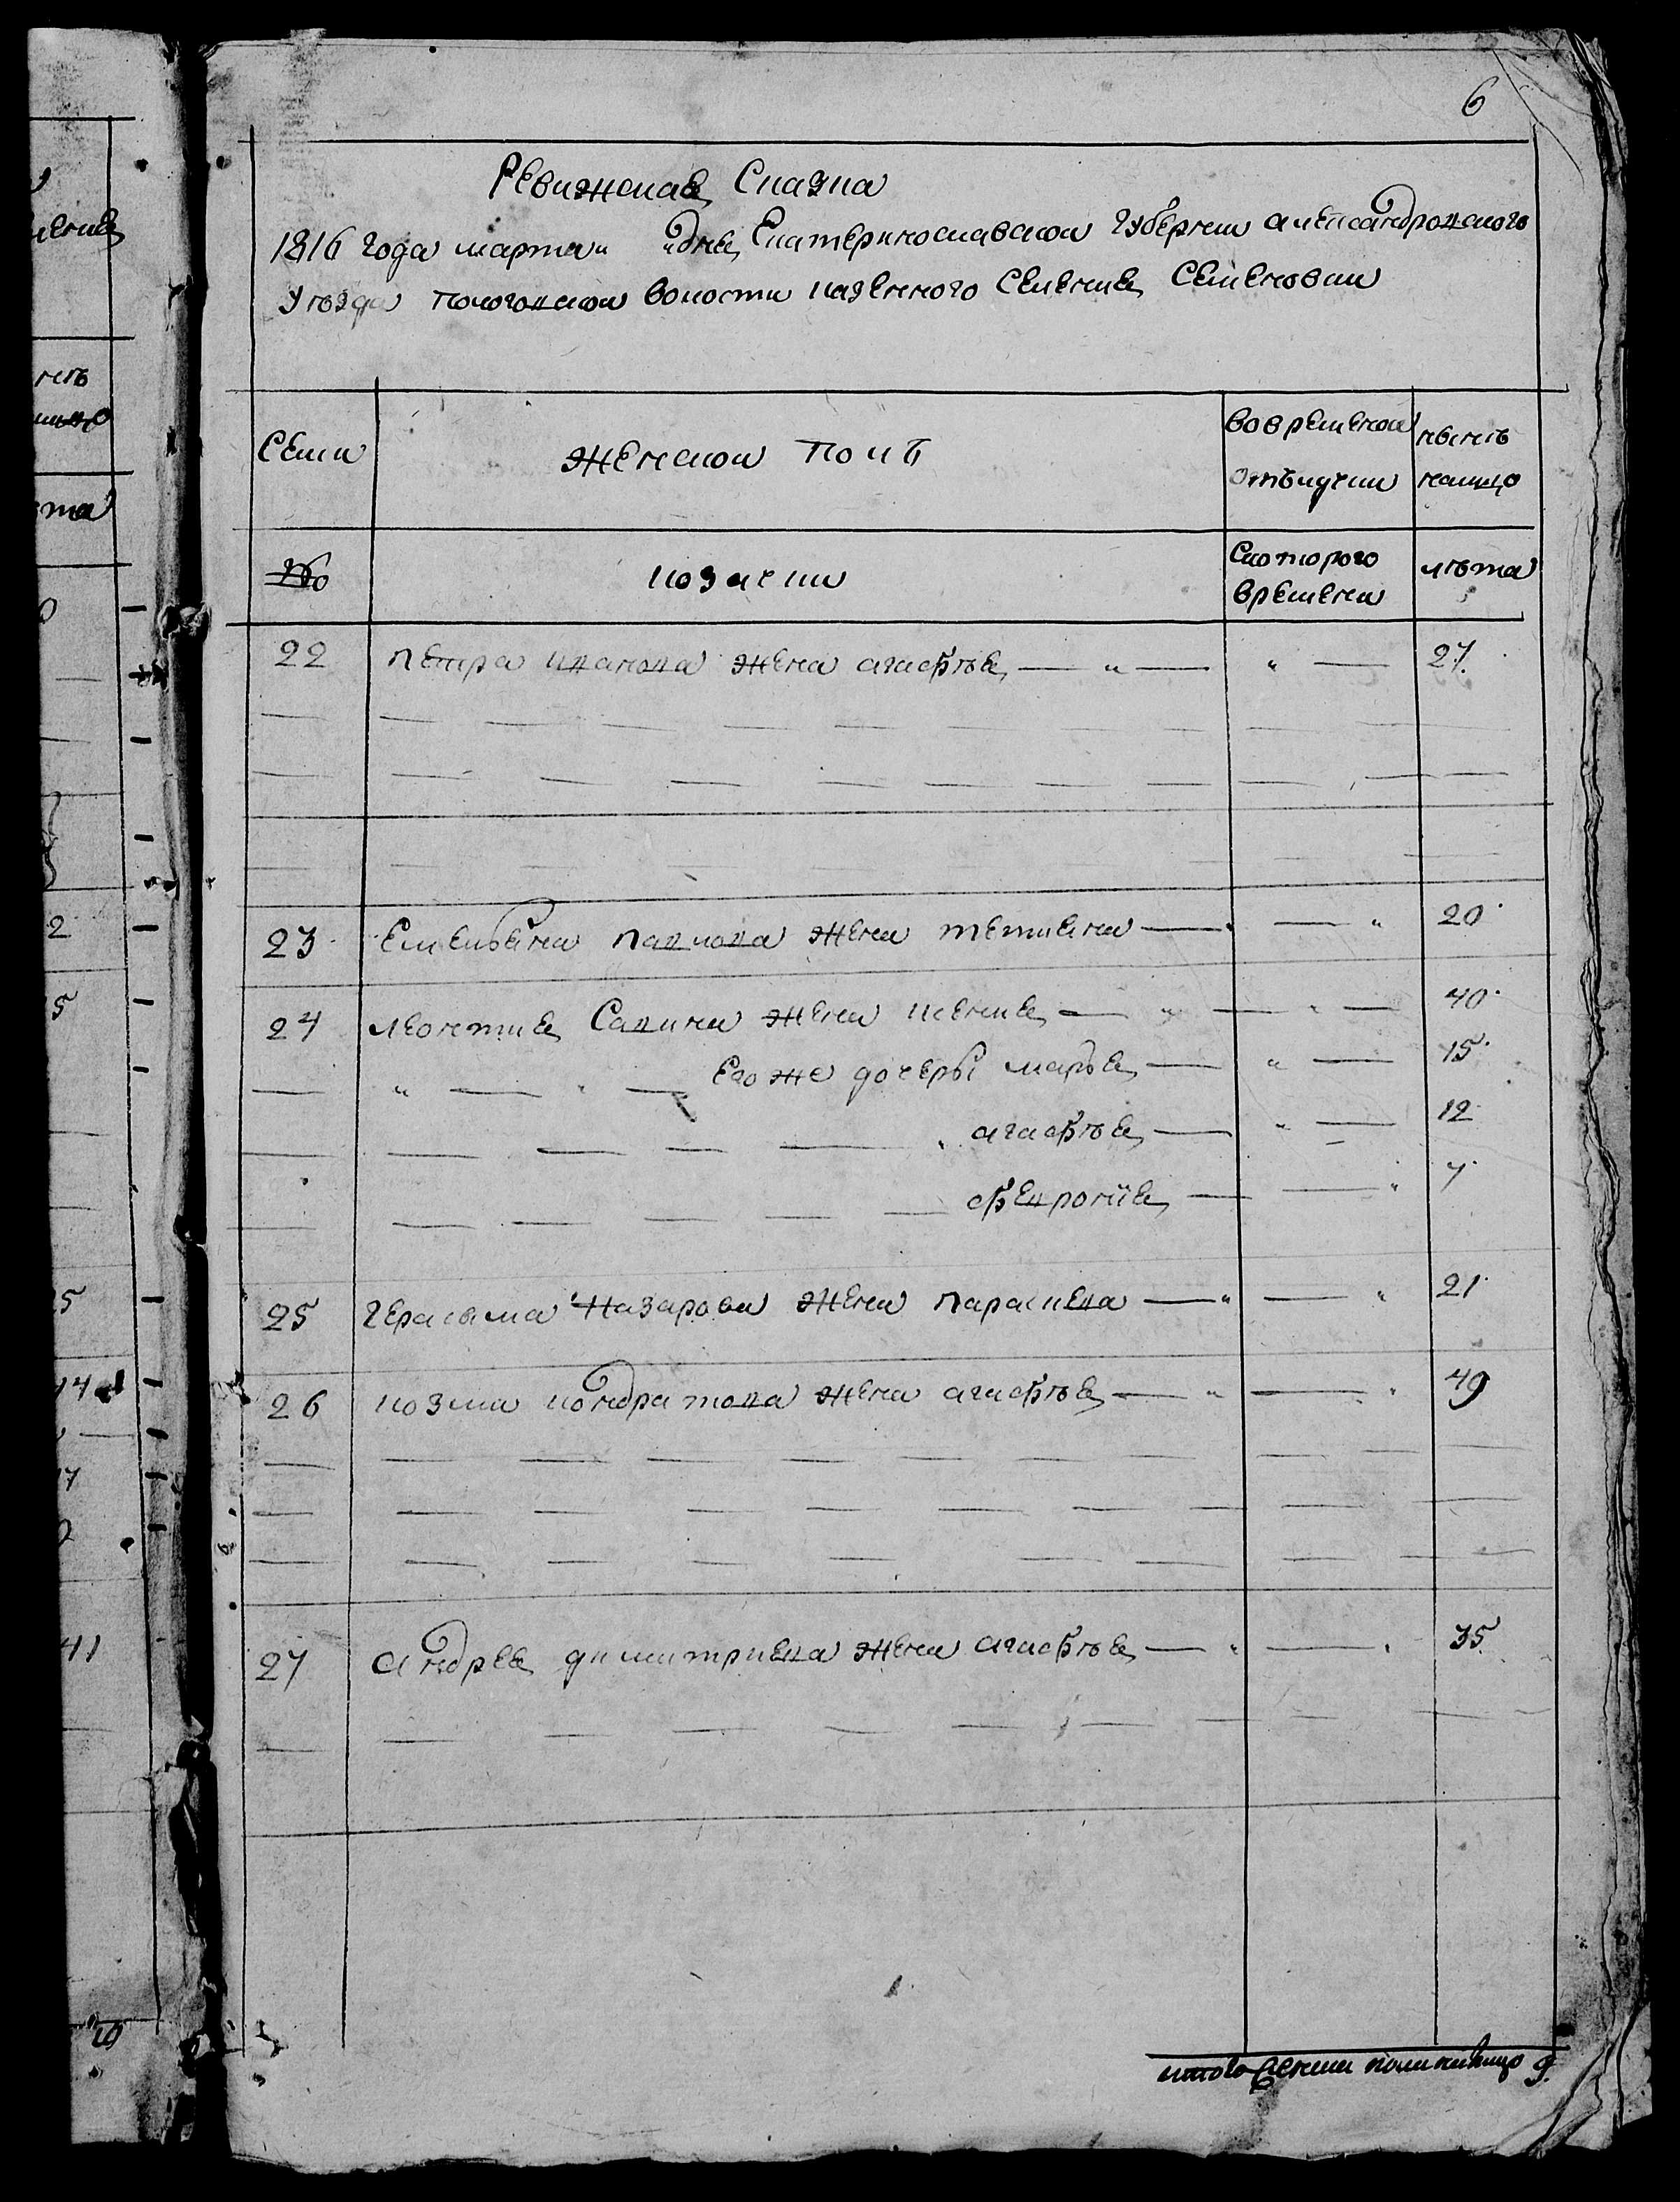 6
Ревижская Сказка
1816 года марта „ „ дня Екатеринославской Губернии александровского
Уѣзда пологовской волости казенного Селения Семеновки
Семи
женской полъ
вовременной
отълучки
нынѣ
налицо
№
козаччи
Скоторого
времени
лѣта
22 петра иванова жена агафѣя — „ — „ — 27.
23 Емельяна павлова жена тетияна — — „ 20.
24 леонтия Савина жена ксения — „ — „ — 40.
— „ — „ — Его же дочеры марья — „ — 15.
агафѣя — „ — 12
февронія — — „ 7.
25 Герасима Назарова жена параскева — „ — „ 21.
26 козма кондратова жена агафѣя — „ — „ 49
27 андрея димитриева жена агафѣя — „ — „ 35.
итого женска пола налицо 9.
2
5
25
44
17
41